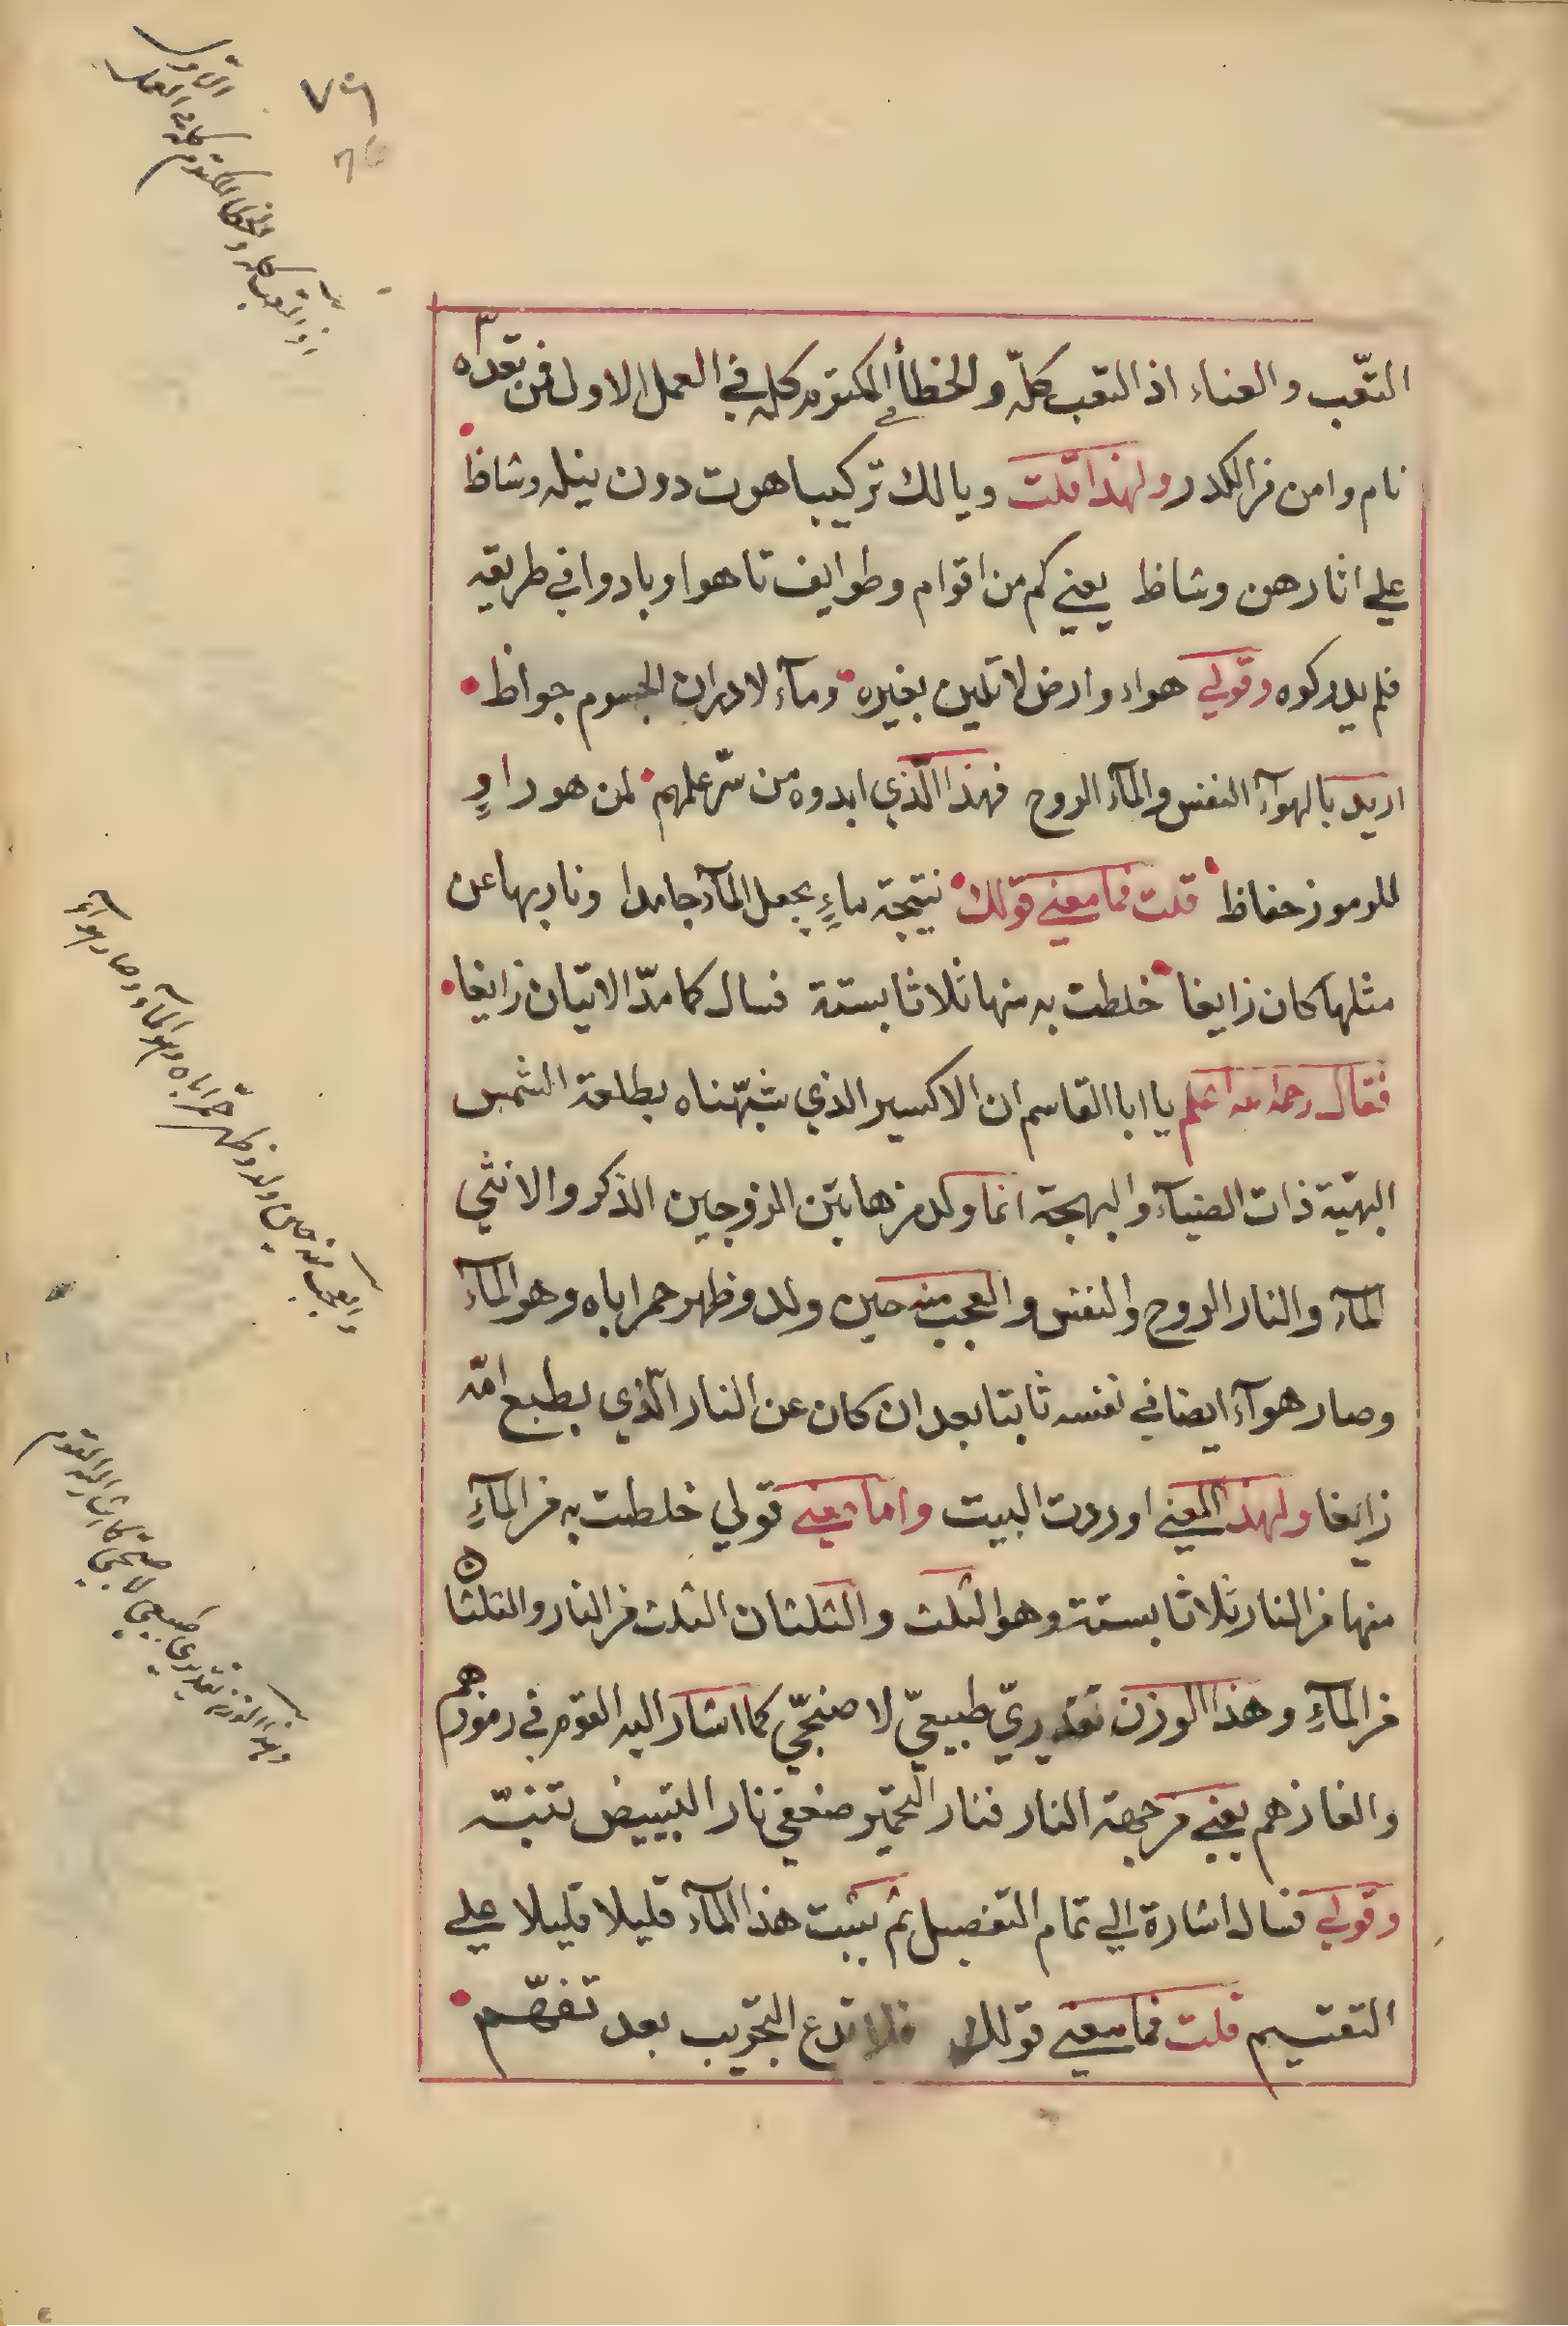 ٧٦
76
اذ التعب كله والخطا المكتوم كله في العمل
الاول
التّعب والعناء اذ التعب كلّه والخطأ المكتوم كله في العمل الاول فمن تعدّاه
نام وامن من الكدر ولهذا قلت ويا لك تركيبا هوت دون نيله وشاظ
علي اثارهن وشاظ يعني كم من اقوام وطوايف تاهوا وبادوا في طريقه
فلم يدركوه وقولي هواء وارض لا تلين بغيره وماء لادران الجسوم جواظ
اريد بالهوآء النفس والمآء الروح فهذا الّذي ابدوه من سرّ علمهم لمن هو راوٍ
للرموز حفاظ قلت فما معني قولك نتيجة ماءٍ يجعل المآء جامدا ونار بها عن
مثلها كان زايغا خلطت به منها ثلاثا بستة فسال كما مدّ الاتيان زايغا
فقال رحمه الله اعلم يا ابا القاسم ان الاكسير الذي شبّهناه بطلعة الشمس
البهيّة ذات الضيآء والبهجة انما ولد من هاتين الزوجين الذكر والانثي
المآء والنار الروح والنفس والعجب منه حين ولد وظهر حمر اباه وهو المآء
وصار هوآء ايضا في نفسه ثابتا بعد ان كان عن النار الّذي بطبع امّه
زايغا ولهذا المعني اوردت البيت واما معني قولي خلطت به من المآءِ
منها من النار ثلاثا بستة وهو الثلث والثلثان الثلث من النار والثلثان
من المآءِ وهذا الوزن تقديريّ طبيعيّ لا صنجيّ كما اشار اليه القوم في رموزهم
والغازهم يعني من جهة النار فنار التحمير ضعفي نار التبييض تنبّه
وقولي فسال اشارة الي تمام التفصيل ثم يثبت هذا المآء قليلا قليلا علي
التقسيم قلت فما معني قولك فلا تدع التجريب بعد تفهّم
والعجب منه حين ولد وظهر حمّر اباه وهو المآء وصار هوآء
وهذا الوزن تقديري طبيعي لا صنجي كما اشار اليه القوم